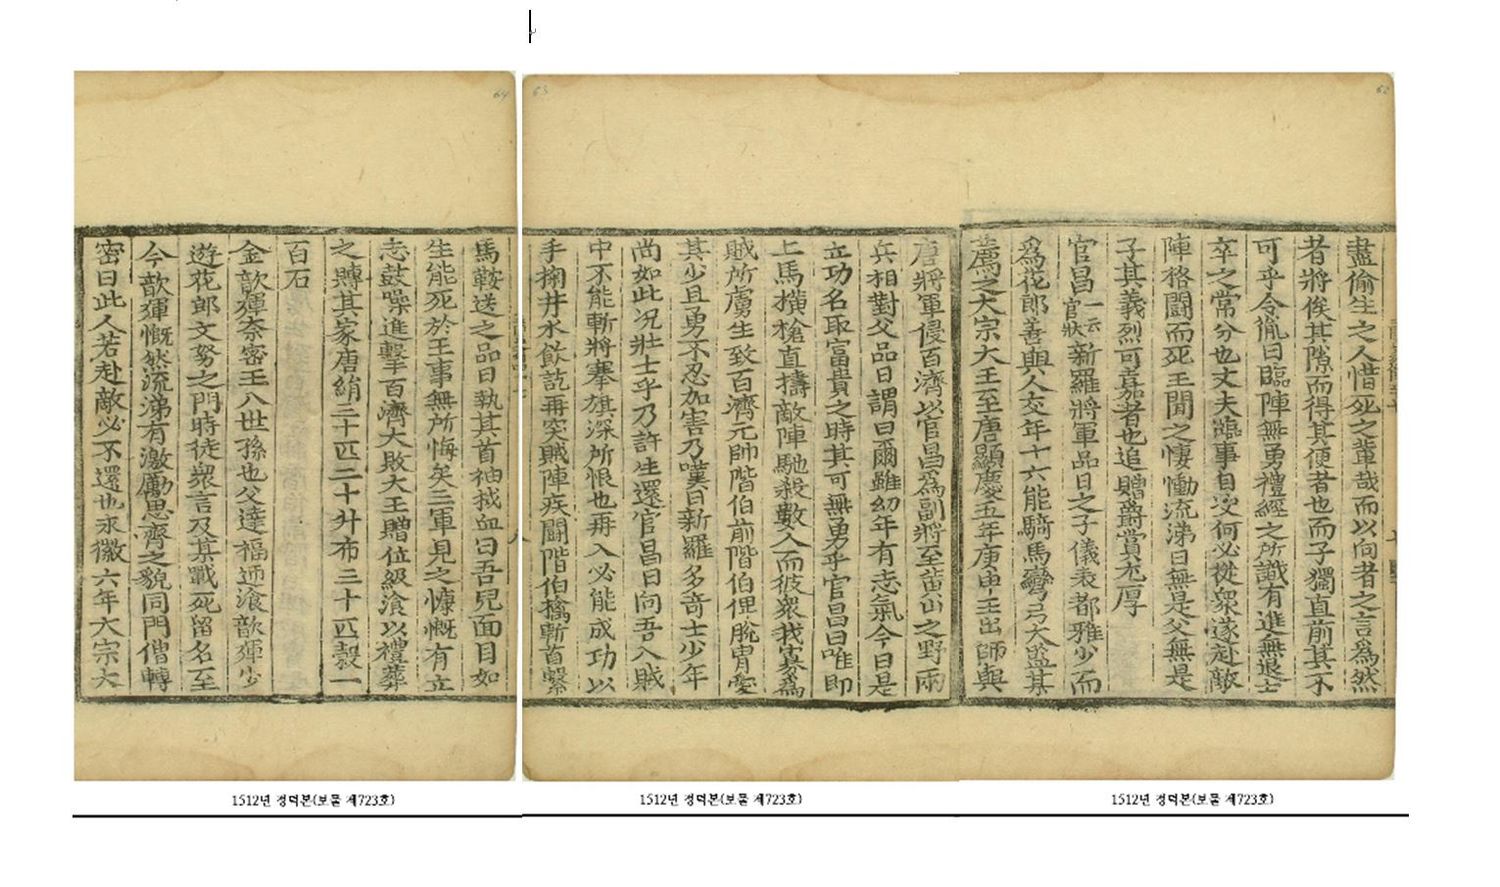 盡偷生之人惜死之輩哉而以向者之言爲然
者將俟其隙而得其便者也而子獨直前其不
可乎令胤曰臨陣無勇禮經之所譏有進無退士
卒之常分也丈夫臨事自決何必從衆遂赴敵
陣格鬪而死王聞之悽慟流涕曰無是父無是
子其義烈可嘉者也追贈爵賞尤厚
官昌一云官狀新羅將軍品日之子儀表都雅少而
爲花郎善與人交年十六能騎馬彎弓大監某
薦之大宗大王至唐顯慶五年庚申王出師與
唐將軍侵百濟以官昌爲副將至黃山之野兩
兵相對父品日謂曰爾雖幼年有志氣今日是
立功名取富貴之時其可無勇乎官昌曰唯即
上馬橫槍直擣敵陣馳殺數人而彼衆我寡爲
賊所虜生致百濟元帥階伯前階伯俾脫冑愛
其少且勇不忍加害乃嘆曰新羅多奇士少年
尚如此况壯士乎乃許生還官昌曰向吾入賊
中不能斬將搴旗深所恨也再入必能成功以
手掬井水飲訖再突賊陣疾鬪階伯擒斬首繫
馬鞍送之品日執其首袖拭血曰吾兒面目如
生能死於王事無所悔矣三軍見之慷慨有立
志鼓噪進擊百濟大敗大王贈位級湌以禮葬
之賻其家唐絹三十匹二十升布三十匹穀一
百石
金歆運奈密王八世孫也父達福迊湌歆運少
遊花郎文努之門時徒衆言及某戰死留名至
今歆運慨然流涕有激勵思齊之貌同門僧轉
密曰此人若赴敵必不還也永徽六年大宗大
64
63
62
1512년 정덕본(보물 제723호)
1512년 정덕본(보물 제723호)
1512년 정덕본(보물 제723호)